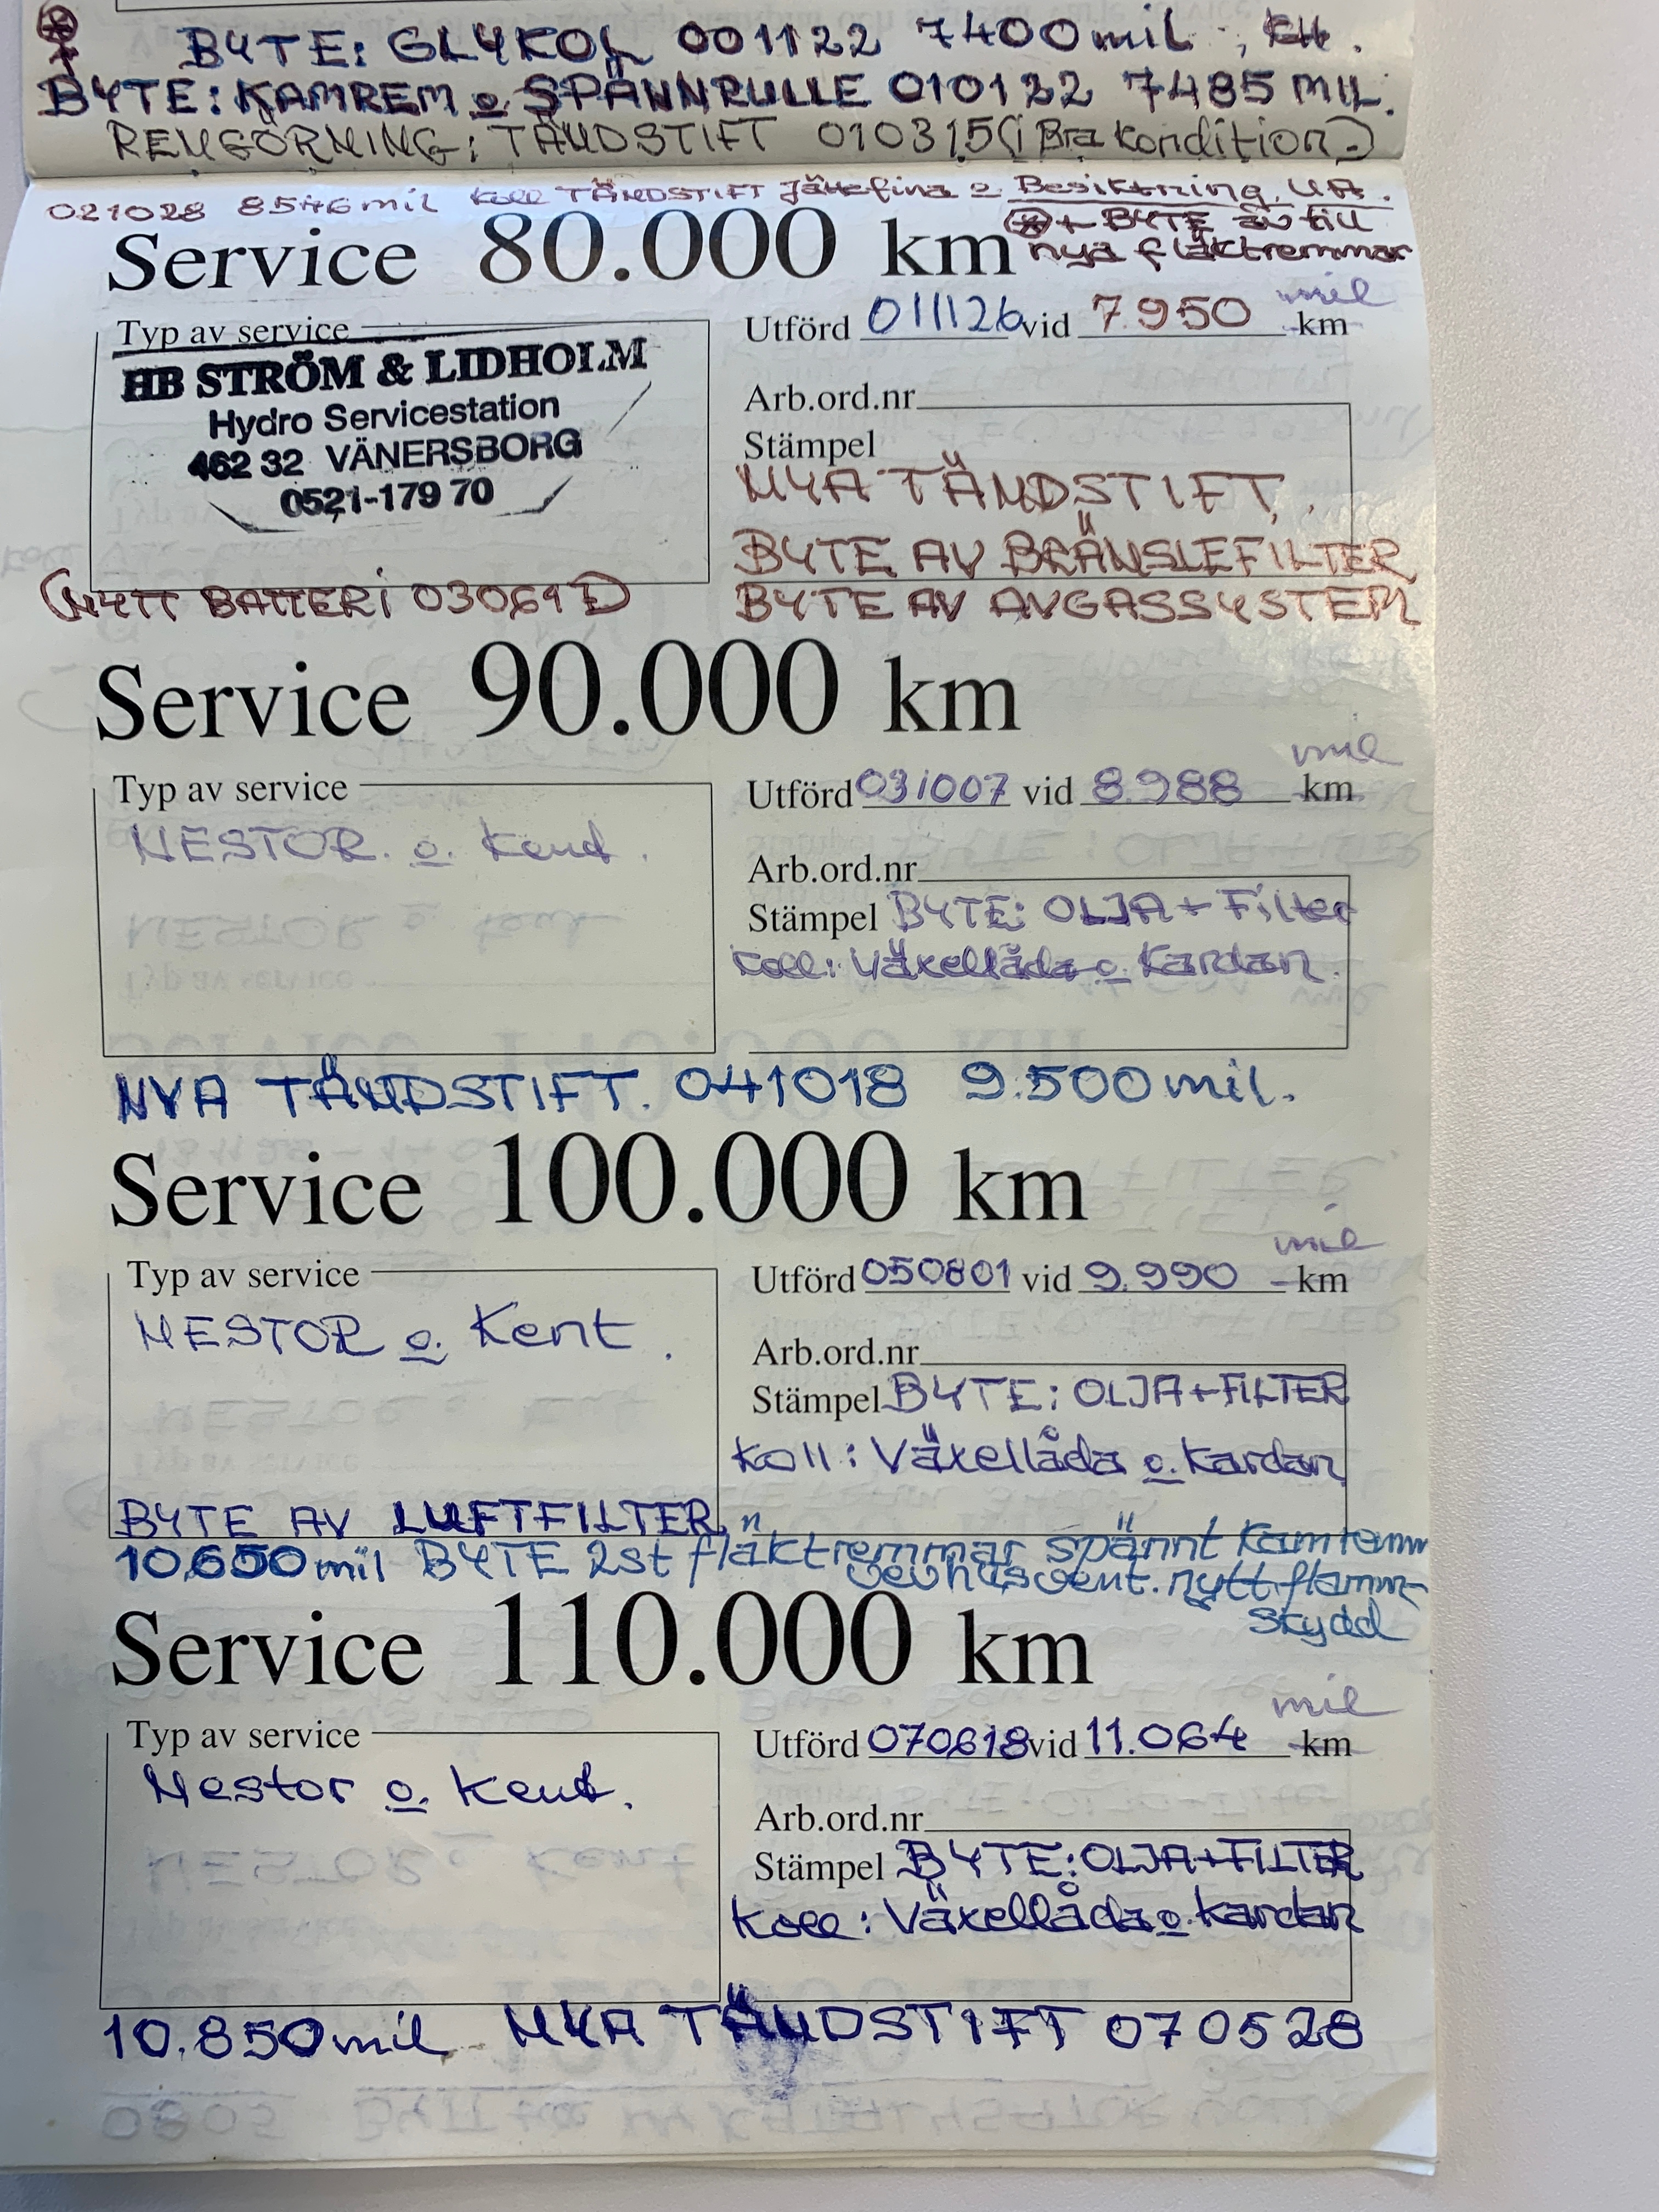 BYTE: GLYKOL 001122 7400mil
BYTE: KAMREM o SPÄNNRULLE 010122 7485 MIL.
RENGÖRNING: TÄNDSTIFT 010315 (i Bra kondition)
021028 8546mil Koll TÄNDSTIFT Jättefina o Besiktning. UA.
+ BYTE av till
nya fläktremmar
Service 80.000 km
mil
Utförd 011126 vid 7.950 km
Typ av service
HB STRÖM & LIDHOLM
Hydro Servicestation
462 32 VÄNERSBORG
0521-179 70
Arb.ord.nr
Stämpel
NYA TÄNDSTIFT.
BYTE AV BRÄNSLEFILTER
BYTE AV AVGASSYSTEM
(NYTT BATTERI 030619)
Service 90.000 km
mil
Typ av service
NESTOR. o. Kent.
Utförd 031007 vid 8.988 km
Arb.ord.nr
Stämpel BYTE: OLJA + Filter
Koll: Växellåda o. Kardan.
NYA TÄNDSTIFT. 041018 9.500mil.
Service 100.000 km
mil
Typ av service
NESTOR o. Kent.
Utförd 050801 vid 9.990 km
Arb.ord.nr
Stämpel BYTE: OLJA+FILTER
Koll: Växellåda o. Kardan
BYTE AV LUFTFILTER
10.650mil BYTE 2st fläktremmar spännt Kamremm
nytt flamm-
skydd
Service 110.000 km
mil
Typ av service
Nestor o. Kent.
Utförd 070618 vid 11.064 km
Arb.ord.nr
Stämpel BYTE: OLJA+FILTER
Koll: Växellåda o. Kardan
10.850mil NYA TÄNDSTIFT 070528